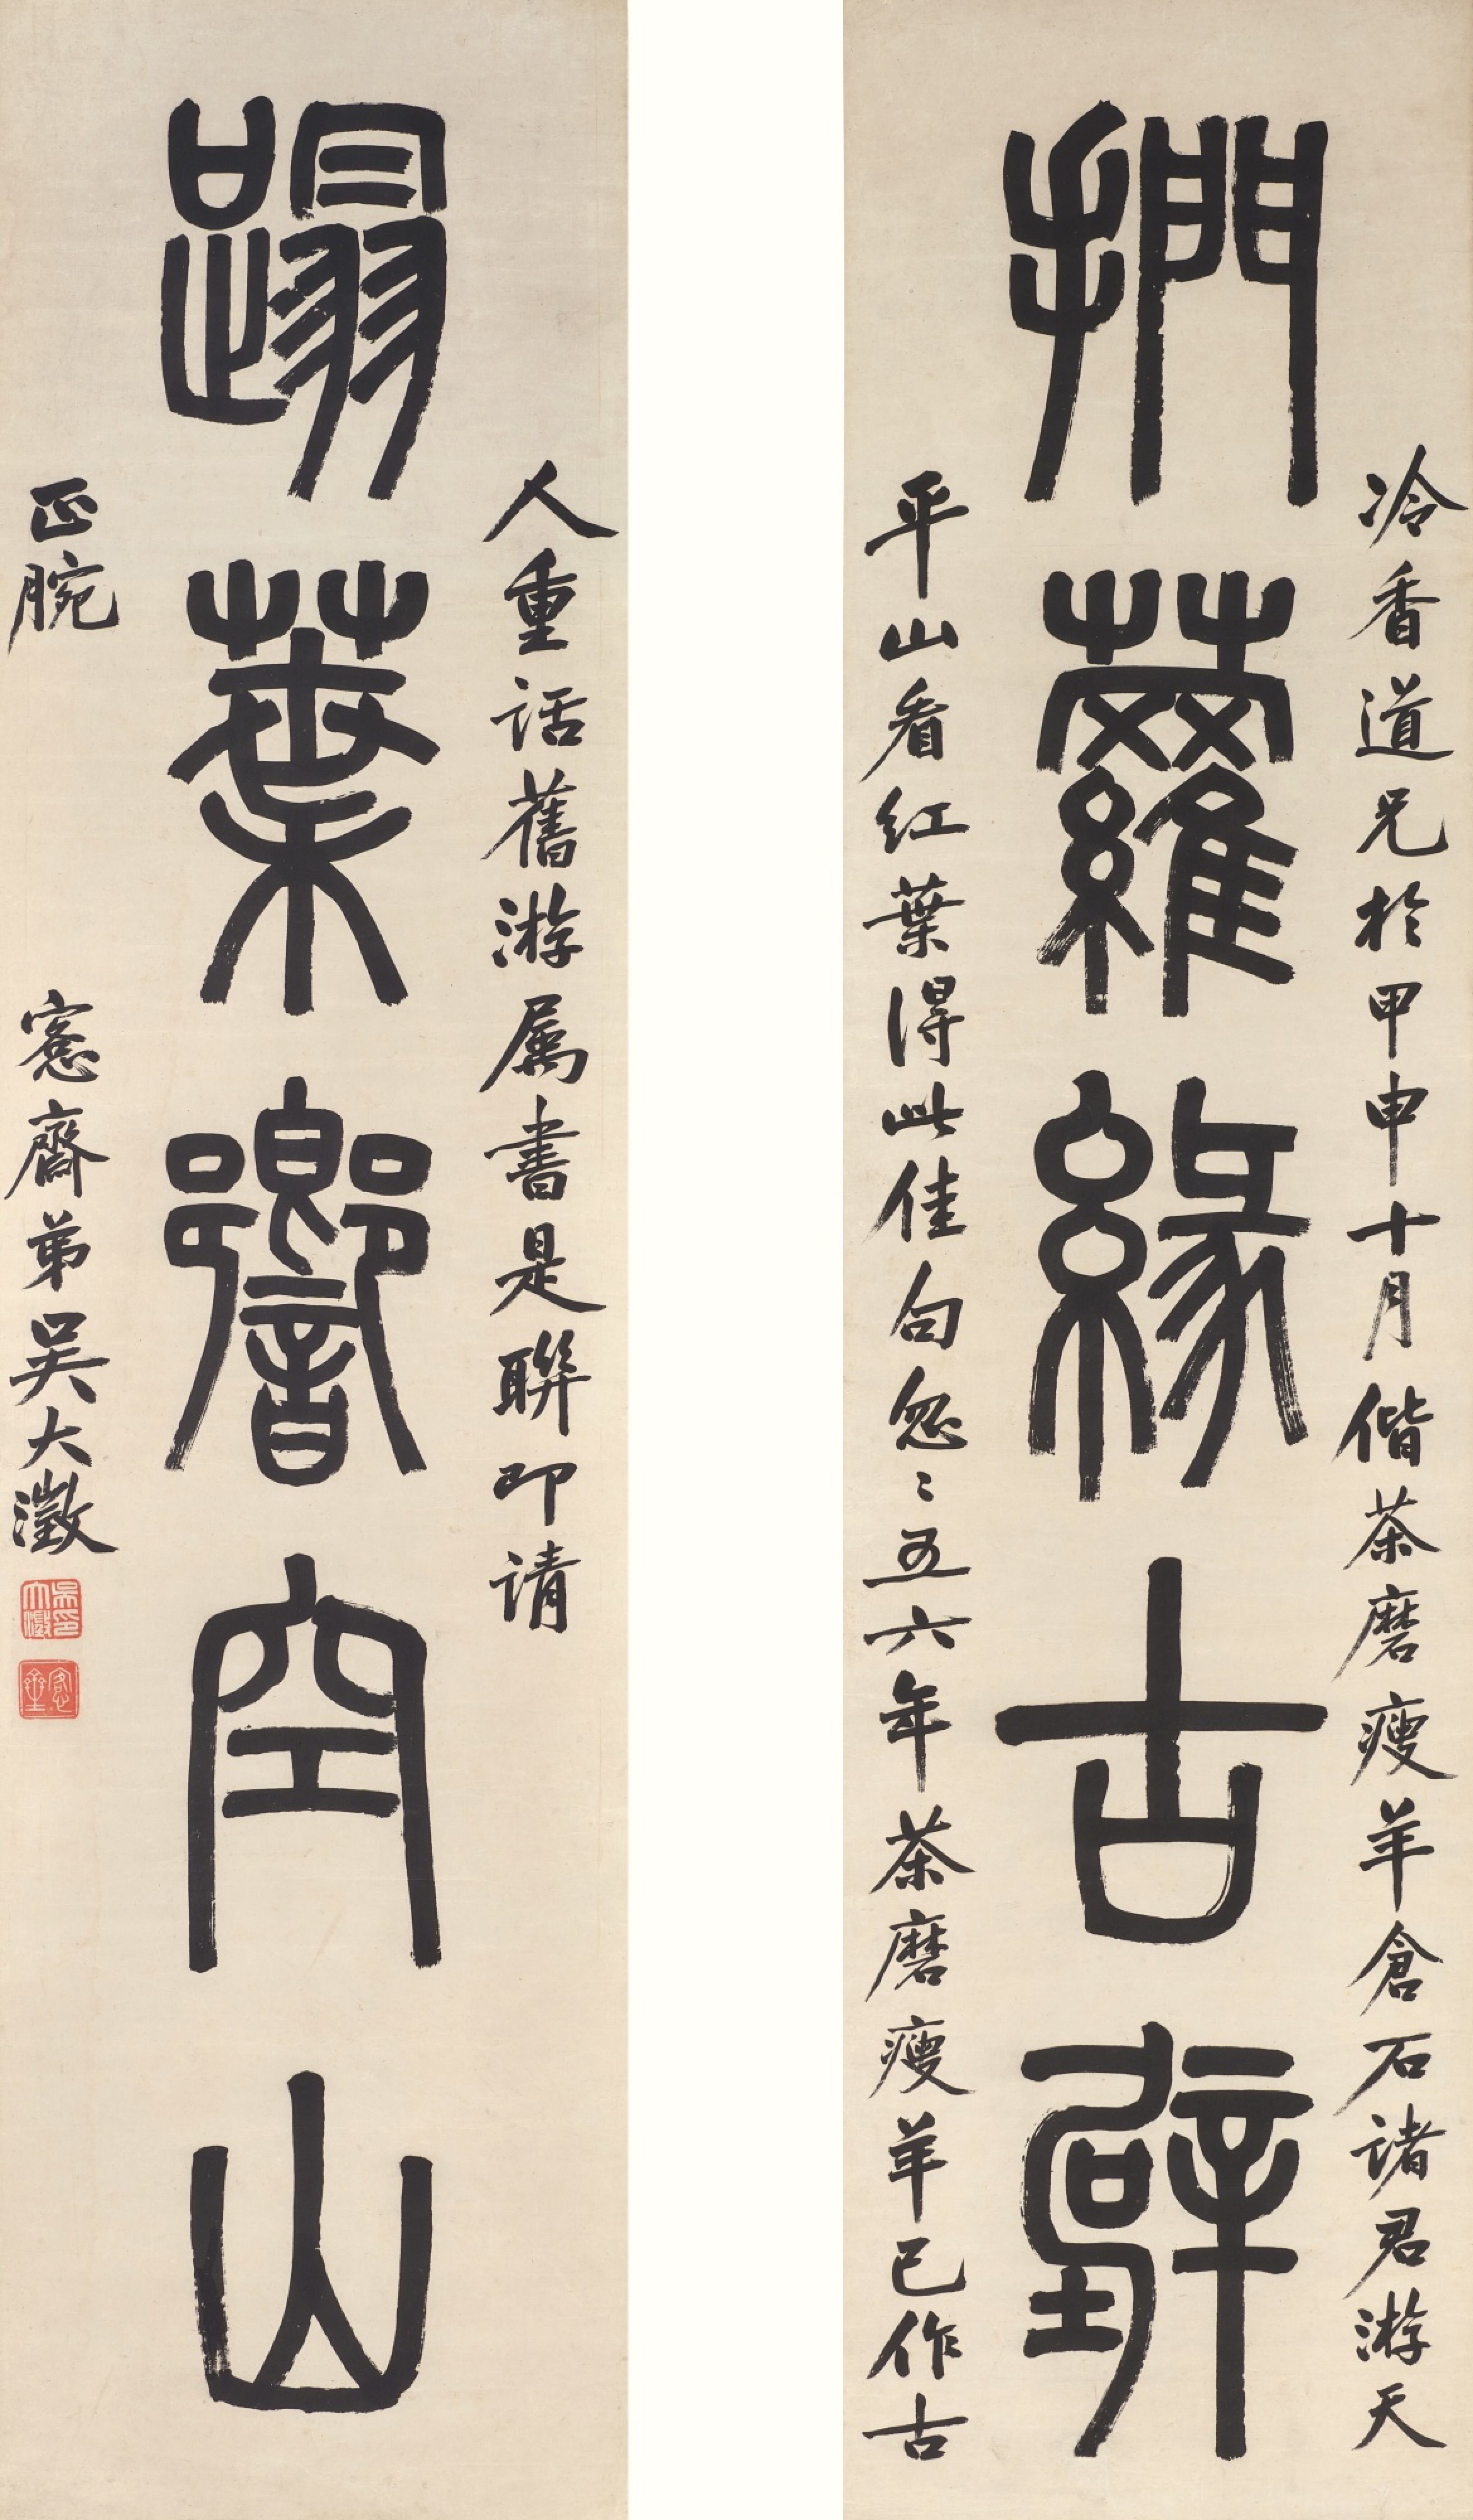 捫蘿緣古壁
冷香道兄於甲申十月偕茶磨瘦羊倉石諸君游天
平山看紅葉得此佳句忽〻五六年茶磨瘦羊已作古
蹋葉響空山
人重話舊游屬書是聯即請
正腕 愙齋弟吳大澂
吳印大澂